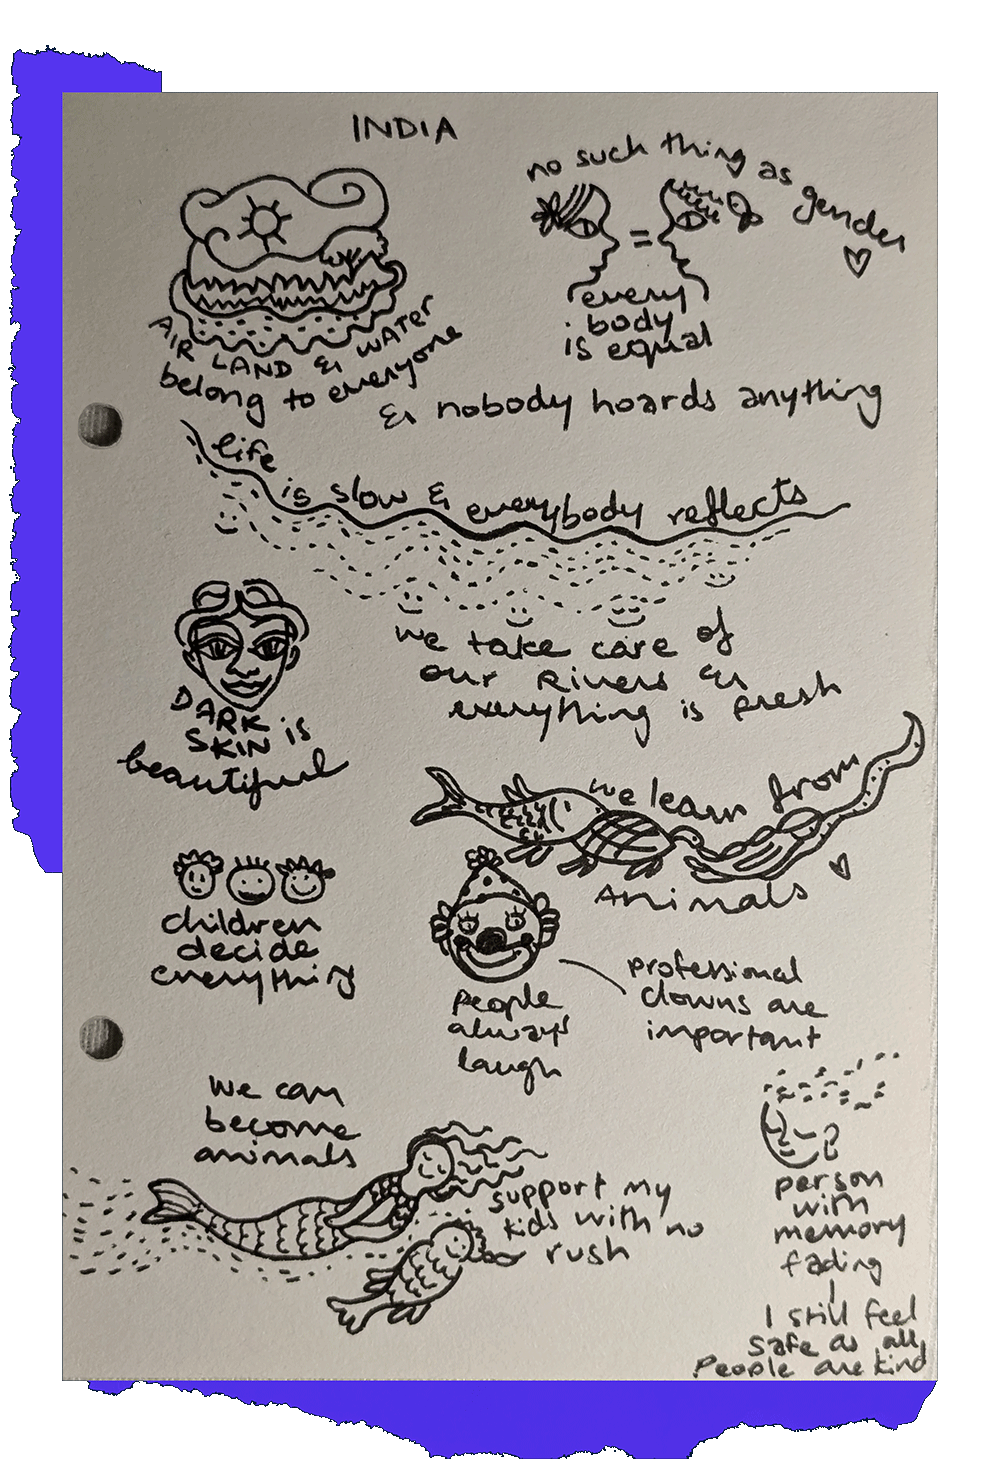 INDIA
no such thing as gender
=
every
body
is equal
AIR LAND & WATER
belong to everyone
& nobody hoards anything
life is slow & everybody reflects
we take care of
our Rivers &
everything is fresh
DARK
SKIN is
beautiful
we learn from
Animals
children
decide
everything
people
always
laugh
professional
clowns are
important
we can
become
animals
support my
kids with no
rush
person
with
memory
fading
I still feel
safe as all
People are kind